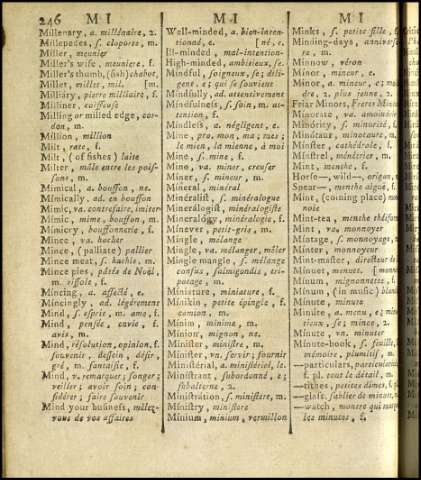 246 M I M I M I
Millenary, a. millénaire, 2.
Millepedes, s. cloportes, m.
Miller, meunier
Miller's wife, meuniere, f.
Miller's thumb, (fish) chabot,
Millet, millet, mil. [m.
Milliary, pierre milliaire, f.
Milliner, coiffeuse
Milling or milled edge, cor-
don, m.
Million, million
Milt, rate, f.
Milt, (of fishes) laite
Milter, mâle entre les pois-
sons, m.
Mimical, a. bouffon, ne.
Mimically, ad. en bouffon
Mimic, va. contrefaire, imiter
Mimic, mime, bouffon, m.
Mimicry, bouffonnerie, f.
Mince, va. hacher
Mince, (palliate) pallier
Mince meat, s. hachis, m.
Mince pies, pâtés de Noël,
m. rissole, f.
Mincing, a. affecté, e.
Mincingly, ad. légérement
Mind, s. esprit, m. ame, f.
Mind, pensée, envie, f.
avis, m.
Mind, résolution, opinion, f.
souvenir, dessein, désir,
gré, m. fantaisie, f.
Mind, v. remarquer; songer;
veiller; avoir soin; con-
sidérer; faire souvenir
Mind your business, mêlez-
vous de vos affaires
Well-minded, a. bien-inten-
tionné, e. [né, e.
Ill-minded, mal-intention-
High-minded, ambitieux, se.
Mindful, soigneux, se; dili-
gent, e; qui se souvient
Mindfully, ad. attentivement
Mindfulness, s. soin, m. at-
tention, f.
Mindless, a. négligent, e.
Mine, pro. mon, ma; mes;
le mien, la mienne, à moi
Mine, s. mine, f.
Mine, va. miner, creuser
Miner, s. mineur, m.
Mineral, minéral
Minéralist, s. minéralogue
Mineralogist, minéralogiste
Mineralogy, minéralogie, f.
Minever, petit-gris, m.
Mingle, mélange
Mingle, va. mélanger, mêler
Mingle mangle, s. mélange
confus, salmigondis, tri-
potage, m.
Miniature, miniature, f.
Minikin, petite épingle, f.
camion, m.
Minim, minime, m.
Minion, mignon, ne.
Minister, ministre, m.
Minister, vn. servir; fournir
Ministérial, a. ministériel, le.
Ministrant, subordonné, e;
subalterne, 2.
Ministration, s. ministere, m.
Ministry, ministere
Minium, minium, vermillon
Minks, s. petite fille, f.
Minding-days,
re, m.
Minnow, véron
Minor, mineur, e.
Minor, a. mineur, e; moin-
dre, 2. plus petit, e.
Friar Minors, Freres Mineurs
Minorate, va. amoindrir
Minórity, s. minorité, f.
Minótaur, minotaure, m.
Minster, cathédrale, f.
Minstrel, ménétrier, m.
Mint, menthe, f.
Horse—wild—, origan, m.
Spear—, menthe aiguë, f.
Mint, (coining place) mon-
noie
Mint-tea, menthe
Mint, va. monnoyer
Mintage, s. monnoyage, m.
Minter, monnoyeur
Mint-master, directeur de
Minuet, menuet. [monn
Minum, mignonnette, f.
Minum, (in music) blanche
Minute, minute
Minúte, a. menu, e;
tieux, se; mince, 2.
Minute, vn. minuter
Minute-book, s. feuille,
mémoire, plumitif, m.
—particulars, particularités
f. pl. tout le détail, m.
—tithes, petites dimes, f. pl.
—glass, sablier de minut, m.
—watch, montre qui marque
les minutes, f.